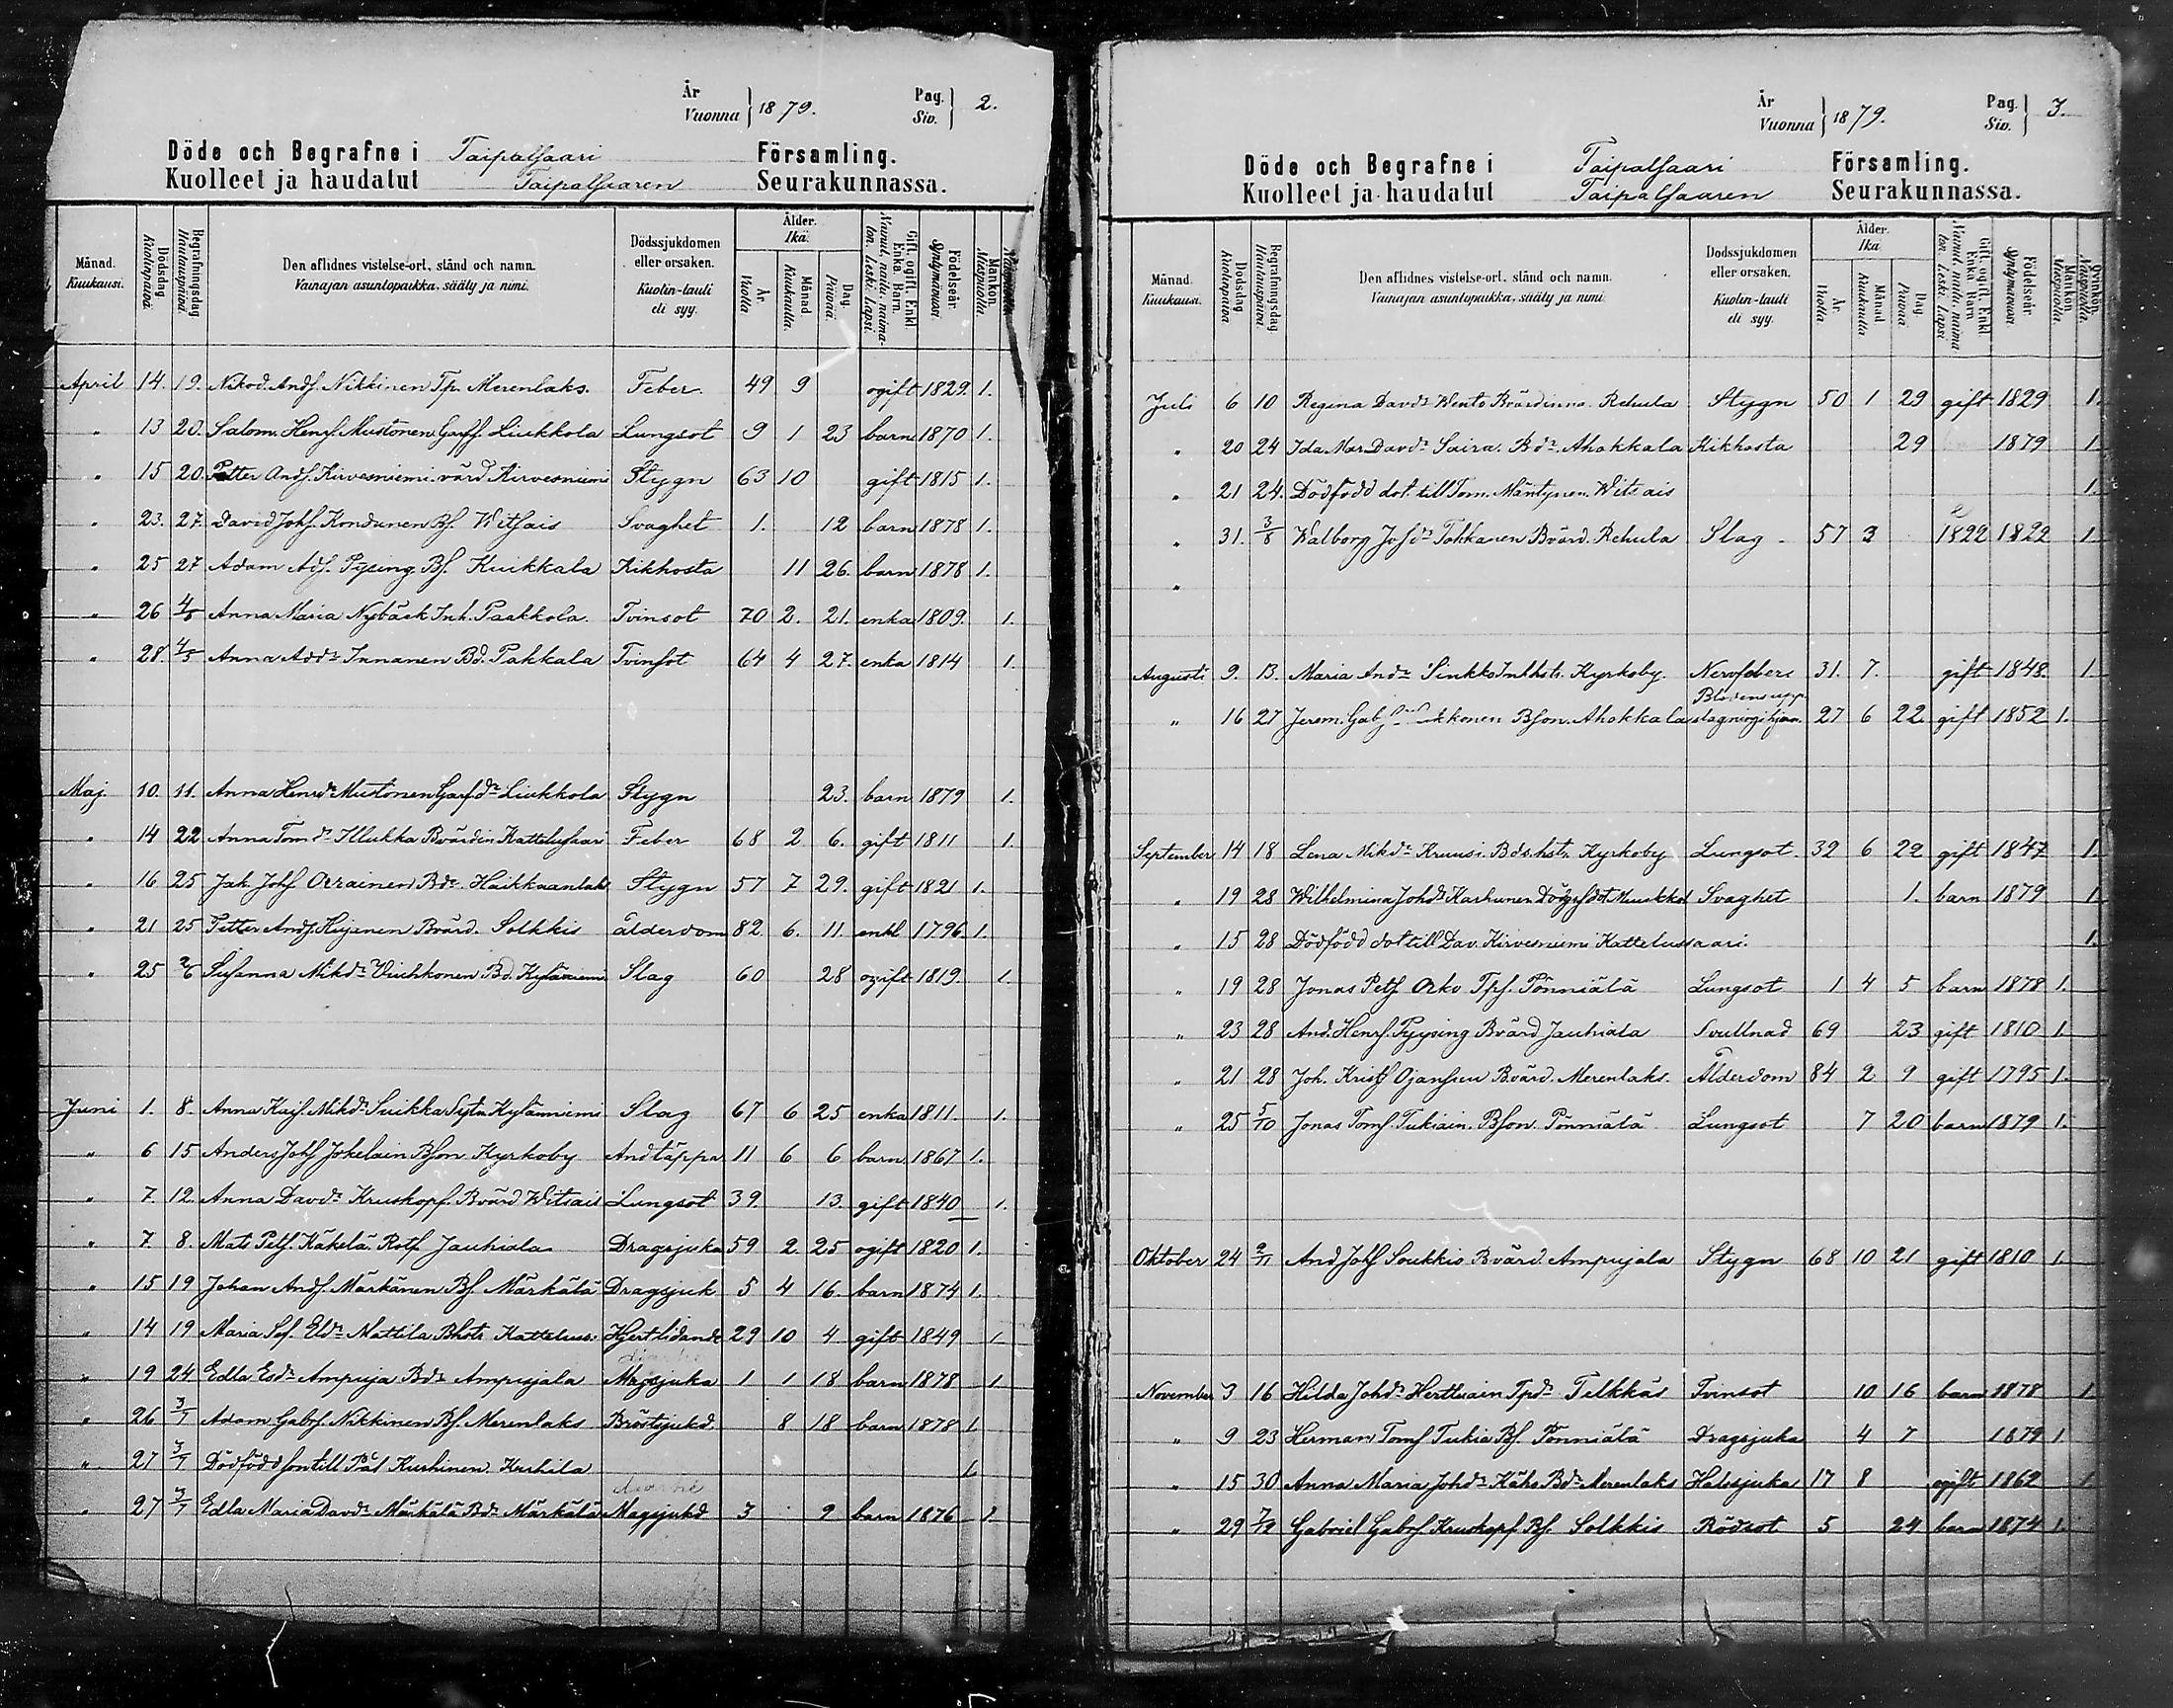 År
Vuonna } 1879. Pag.
Siv. } 2.
Döde och Begrafne i Taipalsaari Församling.
Kuolleet ja haudatut Taipalsaaren Seurakunnassa.
Månad. Kuukausi. Dödsdag Kuolinpäivä. Begrafningsdag Hautauspäivä. Den aflidnes vistelse-ort, stånd och namn. Vainajan asuntopaikka, sääty ja nimi. Dödssjukdomen eller orsaken. Kuolin-tauti eli syy. Ålder. Ikä. År Vuotta Månad Kuukautta. Dag. Päivää. Gift, ogift. Enkl. Enka. Barn. Nainut, naitu, naimaton. Leski. Lapsi. Födelseår. Syntymävuosi. Mankön. Miespuolta.
April 14. 19. Nikod. Andſ. Nikkinen Tp. Merenlaks. Feber. 49 9 ogift 1829. 1.
" 13 20. Salom. Henrſ. Mustonen Garfſ. Liukkola Lungsot 9 1 23 barn 1870 1.
" 15 20. Petter Andſ. Kirvesniemi värd Kirvesniemi Stygn 63 10 gift 1815 1.
" 23. 27. David Johſ. Kondunen Bſ. Witſais Svaghet 1. 12 barn 1878 1.
" 25 27 Adam Adſ. Pysing Bſ. Kuikkala Kikhosta 11 26. barn 1878 1.
" 26 4/5 Anna Maria Nybäck Inh. Paakkola. Tvinsot 70 2. 21. enka 1809. 1.
" 28. 4/5 Anna Addr Innanen Bd. Pakkala Tvinsot 64 4 27. enka 1814 1.
Maj 10. 11. Anna Henrdr Mustonen Garfdr Liukkola Stygn 23. barn 1879 1.
" 14 22 Anna Tomdr Illukka Bvärdin Kattelusaari Feber 68 2 6. gift 1811 1.
" 16 25 Jak. Johſ Orrainen Haikkaanlaks Stygn 57 7 29. gift 1821 1.
" 21 25 Petter Andſ. Hujanen Bvärd. Solkkis ålderdom 82. 6. 11. enkl 1796. 1.
" 25 2/6 Susanna Mikdr Bd. Kyläniemi Slag 60 28 ogift 1819. 1.
Juni 1. 8. Anna Kajs. Mikdr Suikka Kyläniemi Slag 67 6 25 enka 1811. 1.
" 6 15 Anders Johſ Jokelain Bson Kyrkoby Andtäppa 11 6 6 barn. 1867 1.
" 7. 12. Anna Davdr Kruskopf. Bvärd Witsais Lungsot 39. 13. gift 1840 1.
" 7. 8. Mats Petſ. Käkelä Rotſ Jauhiala Dragsjuka 59 2. 25 ogift 1820 1.
" 15 19 Johan Andſ. Märkänen Bſ. Märkälä Dragsjuk 5 4 16. barn 1874 1.
" 14 19 Maria Sof. Eldr Mattila Bhstr Kattelus. Hjertlidande 29 10 4 gift 1849 1
diarrhe
" 19 24 Edla Esdr Ampuja Bdr Ampujala Magsjuka 1 1 18 barn 1878 1
" 26 3/7 Adam Gabrſ. Nikkinen Bſ. Merenlaks Bröstsjukd. 8 18 barn 1878 1.
" 27 3/7 Dödfödd son till Pål Kurhinen. Kurhila 1.
diarrhe
" 27 3/7 Edla Maria Davdr Märkälä Bdr Märkälä Magsjukd 3 9 barn 1876 1
År
Vuonna } 1879. Pag.
Siv. } 3.
Döde och Begrafne i Taipalsaari Församling.
Kuolleet ja haudatut Taipalsaaren Seurakunnassa.
Månad. Kuukausi. Dödsdag Kuolinpäivä Begrafningsdag Hautauspäivä. Den aflidnes vistelse-ort, stånd och namn. Vainajan asuntopaikka, sääty ja nimi. Dödssjukdomen eller orsaken. Kuolin-tauti eli syy. Ålder. Ikä År Vuotta Månad Kuukautta Dag. Päivää Gift, ogift. Enkl. Enka. Barn Nainut, naitu, naimaton. Leski. Lapsi Födelseår. Syntymävuosi. Mankön. Miespuolta. Qvinkön.
Juli 6 10 Regina Davdr Wento Bvärdinna. Rehula Stygn 50 1 29 gift 1829 1.
" 20 24 Ida Mar. Davdr Saira. Bdr. Ahokkala Kikhosta 29 1879 1.
" 21 24. Dödfödd dot. till Tom. Mäntynen. Witsais 1.
" 31. 3/8 Walborg Josdr Tokkanen Bvärd. Rehula Slag. 57 3 1822 1822 1.
"
Augusti 9. 13. Maria Andr Sinkko Inhhstr. Kyrkoby. Nervfeber 31. 7. gift 1848. 1.
Blodens upp
" 16 27 Jerem. Gabſ. Bson. Ahokkala stagning i hjern. 27 6 22 gift 1852 1.
September 14 18 Lena Mikdr Kruusi. Bdshstr. Kyrkoby Lungsot. 32 6 22 gift 1847 1.
" 19 28 Wilhelmina Johdr Karhunen Muukkol Svaghet 1. barn 1879 1
" 15 28 Dödfödd dot till Dav. Kirvesniemi Kattelussaari. 1.
" 19 28 Jonas Petſ Orko Tpſ. Pönniälä Lungsot 1 4 5 barn 1878 1.
" 23 28 And. Henrſ. Pyysing Bvärd Jauhiala Svullnad 69 23 gift 1810 1.
" 21 28 Joh. Kristſ Ojansuu Bvärd. Merenlaks. Ålderdom 84 2 9 gift 1795 1.
" 25 5/10 Jonas Tomſ. Tukiain. Bson. Pönniälä Lungsot 7 20 barn 1879 1.
Oktober 24 2/11 And Johſ Soukkio Bvärd. Ampujala Stygn 68 10 21 gift 1810 1.
November 3 16 Hilda Johdr Herttuain Tpdr Telkkäs Tvinsot 10 16 barn 1878 1
" 9 23 Herman Tomſ Tukia Bſ. Pönniälä Dragsjuka 4 7 1879 1.
" 15 30 Anna Maria Johdr Kähö Bdr Merenlaks Halssjuka 17 8 ogift 1862 1.
" 29 7/12 Gabriel Gabrſ Kruskopf Bſ. Solkkis Rödsot 5 24 barn 1874 1.